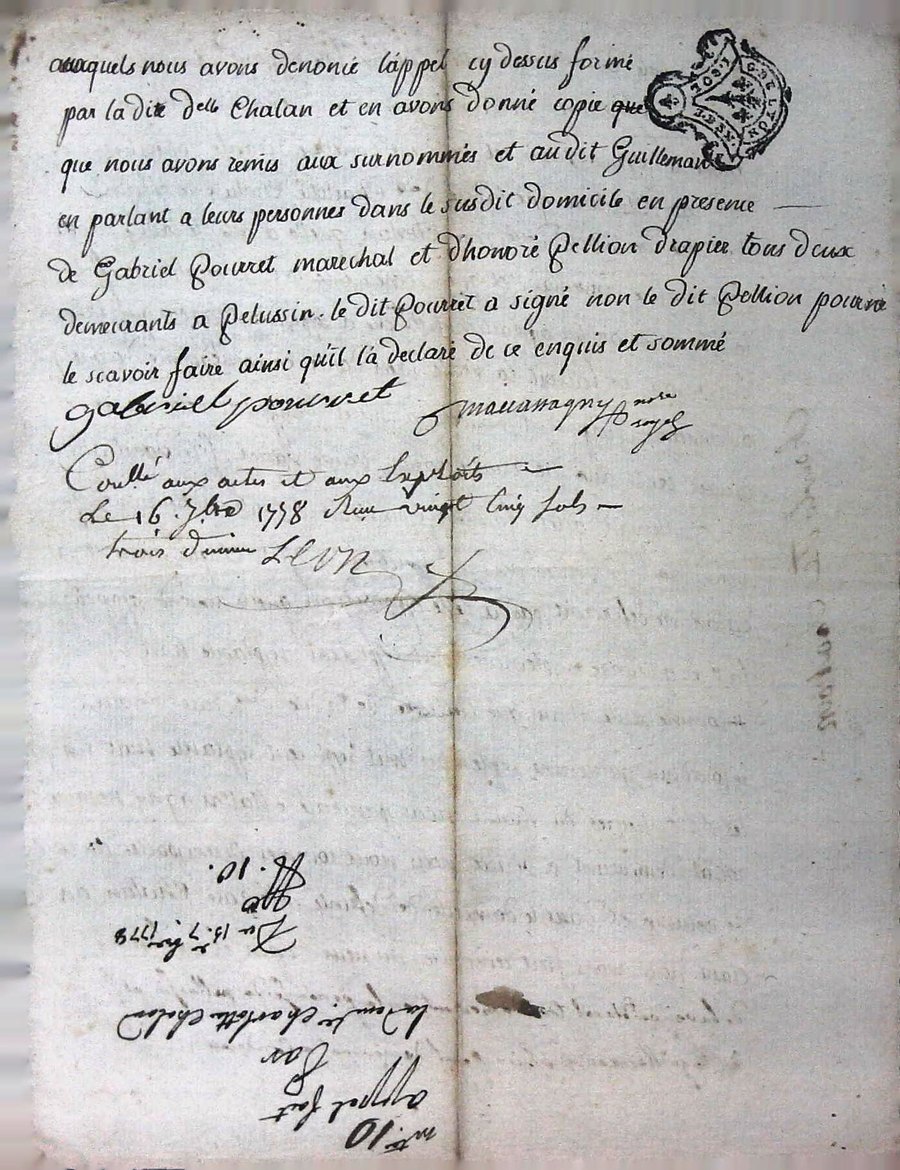 auxquels nous avons denoncé l'appel cy dessus formé
par la dite delle Chalan et en avons donné copie que
que nous avons remis aux surnommés et audit Guilleman
en parlant a leurs personnes dans le susdit domicile en presence
de Gabriel Pourret marechal et d'honoré Pellion drapier tous deux
demeurants a Pelussin. le dit Pourret a signé non le dit Pellion pour ne
le scavoir faire ainsi qu'il l'a declaré de ce enquis et sommé
gabriel pourret
nore
royal
Conllé aux actes et aux Exploits
Le 16 7bre 1778 Reçu vingt Cinq sols
trois denier
GEN. DE LYON
mte. 10
appel fait
Par
la Demlle Charlotte Chalan
Du 15. 7bre 1778
N. 10.